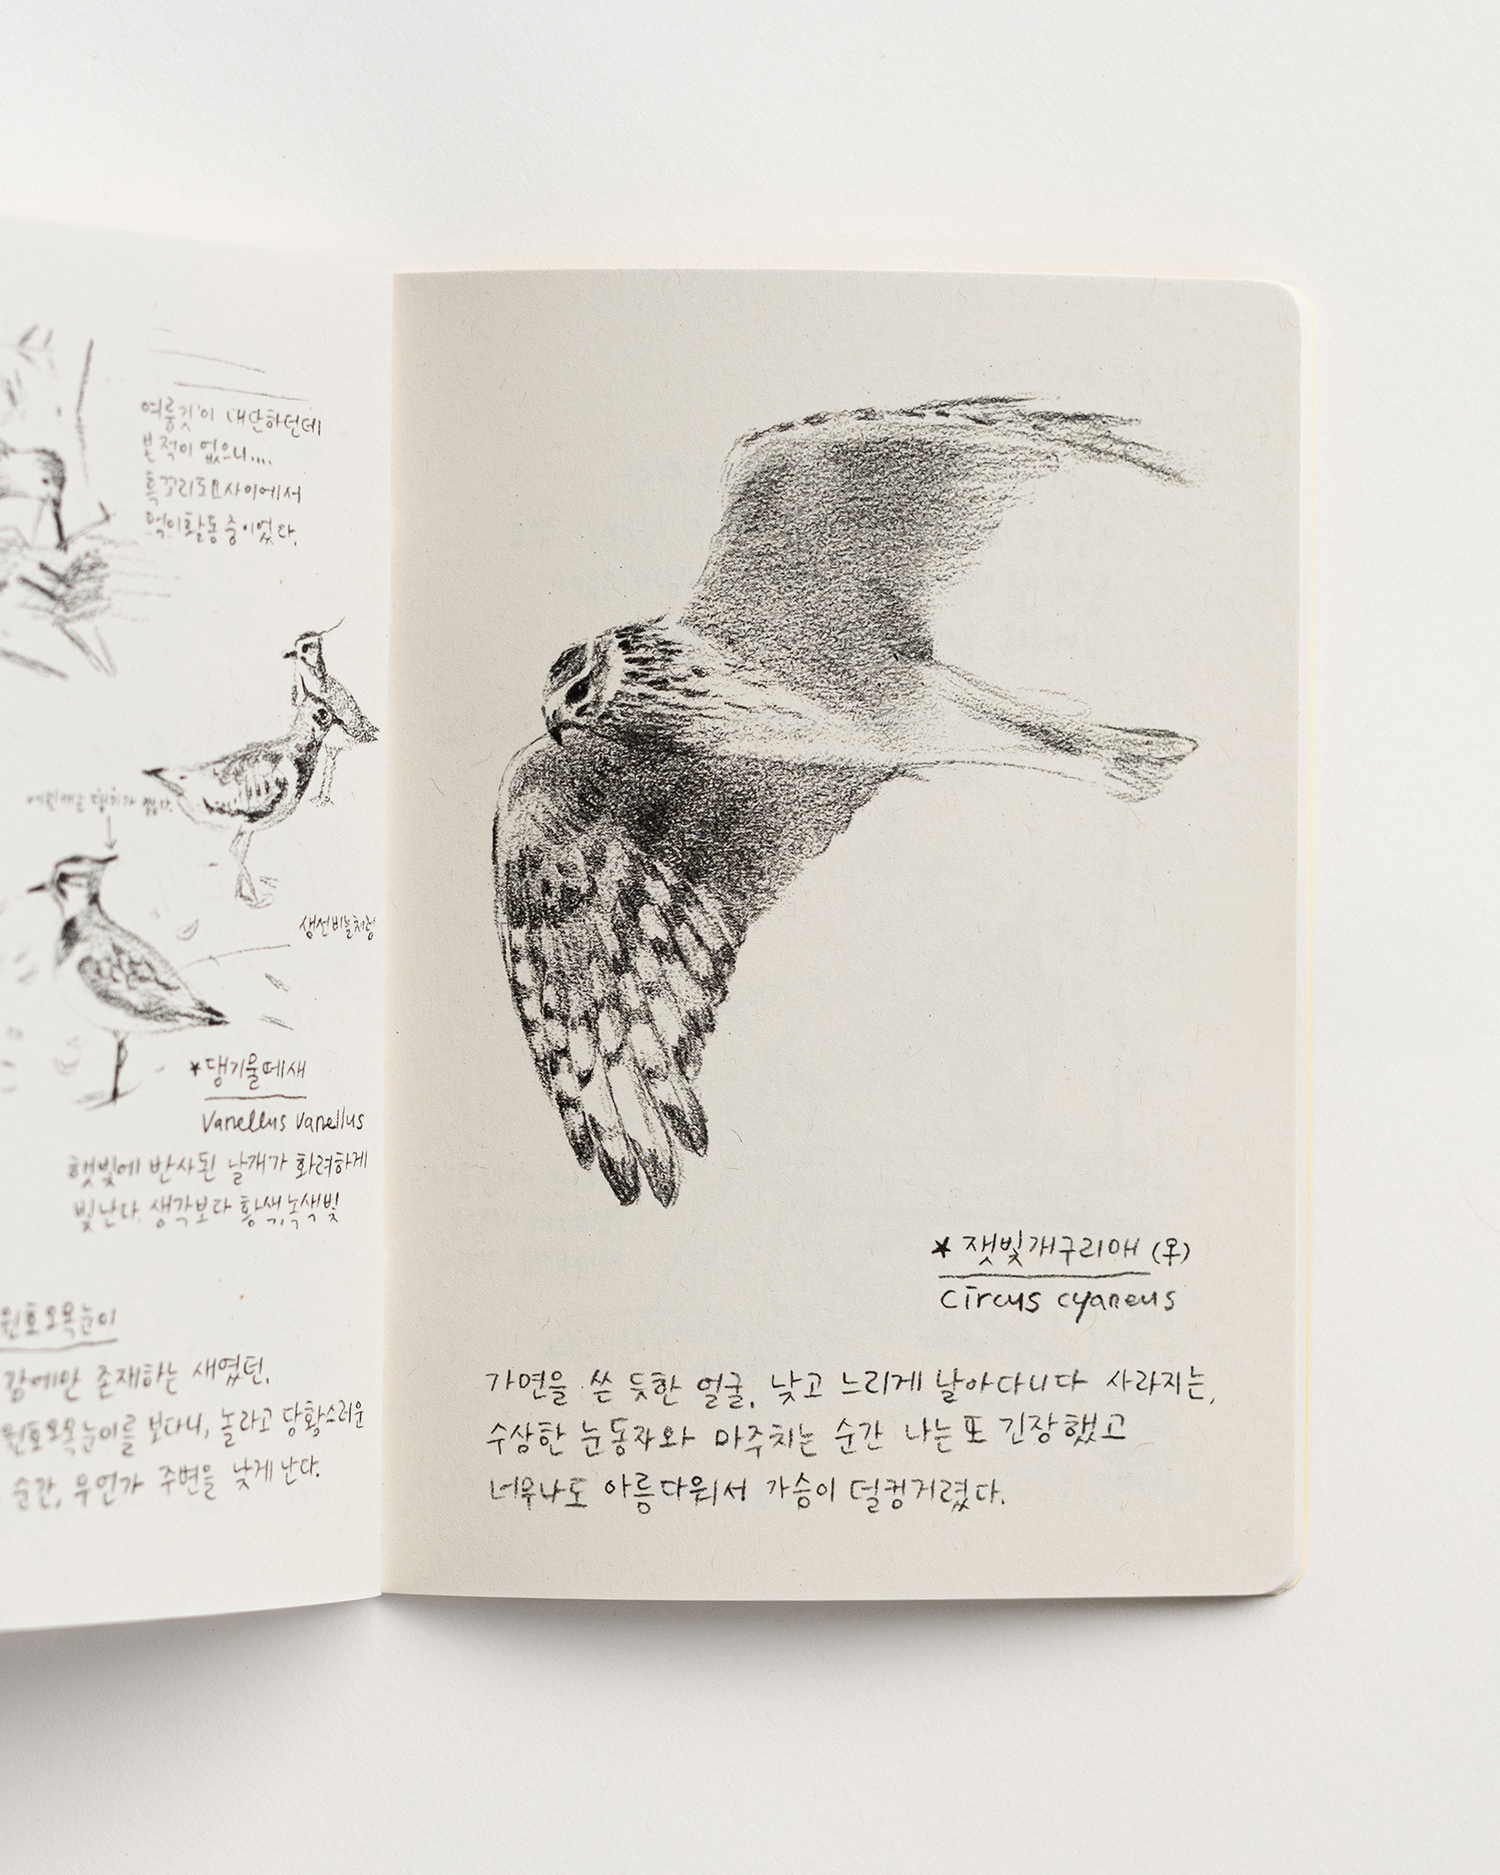 여름깃이 대단하던데
본 적이 없으니....
흑꼬리도요 사이에서
먹이활동 중이었다.
생선비늘처럼
*댕기물떼새
Vanellus vanellus
햇빛에 반사된 날개가 화려하게
빛난다. 생각보다 황색, 녹색빛
원효오목눈이
감에만 존재하는 새였던,
원효오목눈이를 보다니, 놀라고 당황스러운
순간, 우연가 주변을 낮게 난다.
*잿빛개구리매 (우)
Circus cyaneus
가면을 쓴 듯한 얼굴, 낮고 느리게 날아다니다 사라지는,
수상한 눈동자와 마주치는 순간 나는 또 긴장했고
너무나도 아름다워서 가슴이 덜컹거렸다.